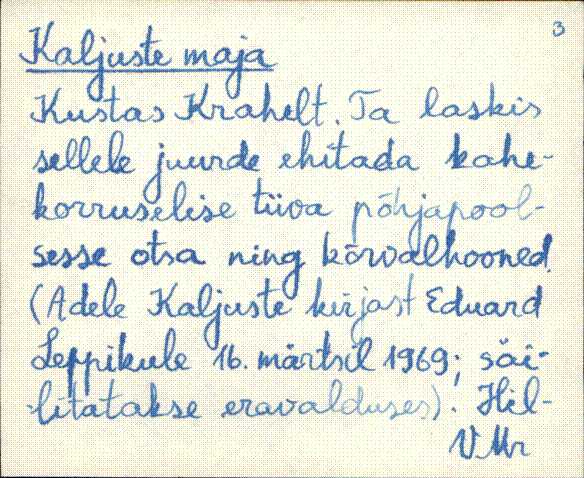 3
Kaljuste maja
Kustas Krahelt. Ta laskis
sellele juurde ehitada kahe-
korruselise tiiva põhjapool-
sesse otsa ning kõrvalhooned.
(Adele Kaljuste kirjast Eduard
Leppikule 16. märtsil 1969; säi-
litatakse eravalduses). Hil-
VMr